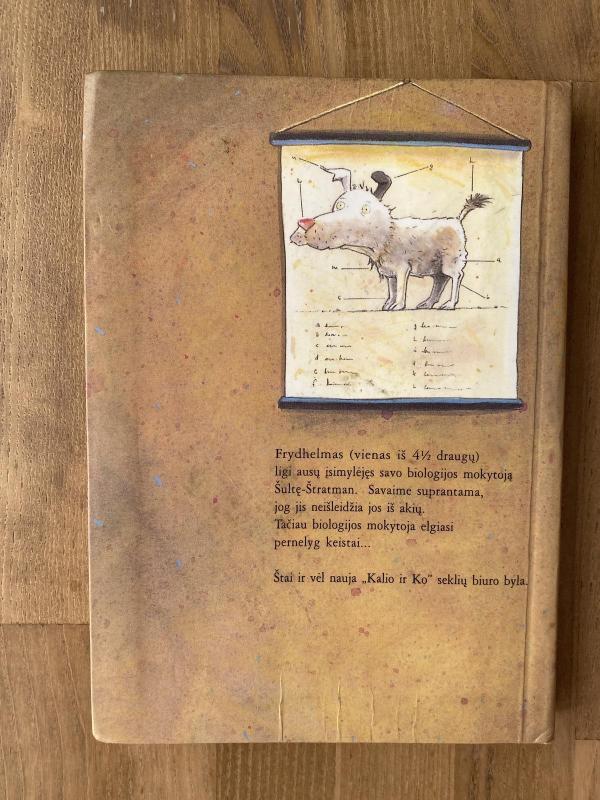 Frydhelmas (vienas iš 4½ draugų)
ligi ausų įsimylėjęs savo biologijos mokytoją
Šultę-Štratman. Savaime suprantama,
jog jis neišleidžia jos iš akių.
Tačiau biologijos mokytoja elgiasi
pernelyg keistai...
Štai ir vėl nauja „Kalio ir Ko" seklių biuro byla.